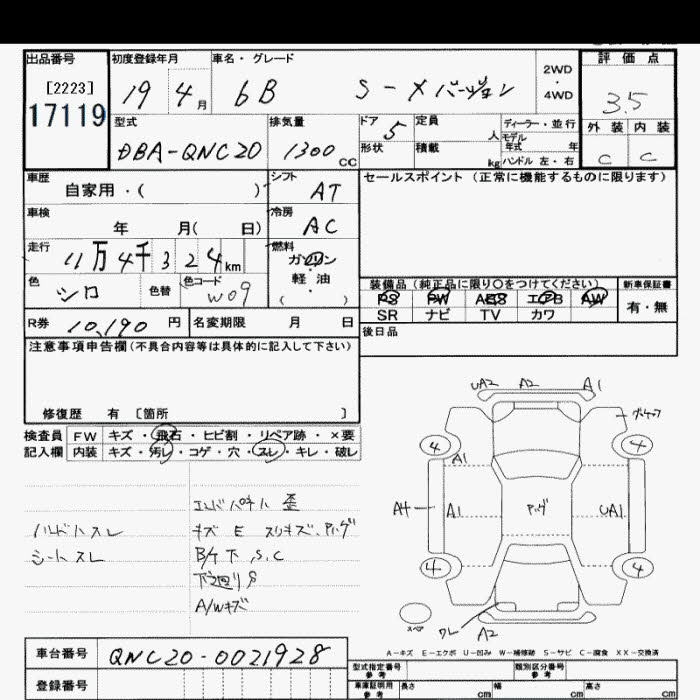 出品番号 初度登録年月 車名・グレード 2WD・4WD 評価点
[2223]
17119
19 4月 bB S-Xバージョン 3.5
型式 排気量 ドア 定員 ディーラー・並行 外装 内装
DBA-QNC20 1300cc 5 人 モデル年式 年 C C
形状 積載 kg ハンドル 左・右
車歴 自家用・( ) シフト AT セールスポイント(正常に機能するものに限ります)
車検 年 月( 日) 冷房 AC
走行 11万4千324km 燃料 ガソリン・軽油 ( )
色 シロ 色替 色コード W09
装備品(純正品に限り○をつけてください) 新車保証書
PS PW ABS エアB AW 有・無
SR ナビ TV カワ
R券 10,190円 名変期限 月 日 後日品
注意事項申告欄(不具合内容等は具体的に記入して下さい)
修復歴 有 [箇所 ]
検査員 FW キズ・飛石・ヒビ割・リペア跡・×要
記入欄 内装 キズ・汚レ・コゲ・穴・スレ・キレ・破レ
UA2 A2 A1
4 4
A1
A4 A1 UA1
4 4
エンドパネル 歪
ハンドルスレ キズ E スリキズ、
シートスレ B/ケ下 S.C
下廻りS
A/Wキズ
スペア ワレ A2
A-キズ E-エクボ U-凹み W-補修跡 S-サビ C-腐食 XX-交換済
車台番号 QNC20-0021928
登録番号
型式指定番号 参考 類別区分番号 参考
車庫証明用 参考 長さ cm 幅 cm 高さ cm